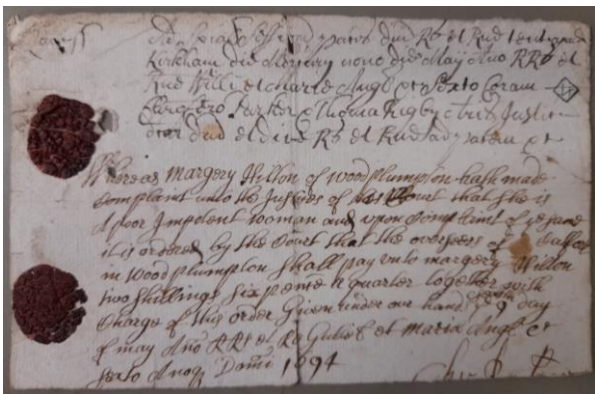 Ad Session pacis Dni Rs et Rne tent apud
Kirkham die Mercury nono die May Ano RRs et
Rne Willi et Marie Angl &c Sexto Coram
Parker & Thoma Rigby Justic
Dni et Dne Rs et Rne ad pacem &c
Whereas Margery Hilton of Woodplumpton hath made
Complaint unto the Justices of this Court that she is
A poor Impotent Woman and upon Complaint of ye same
it is ordered by the Court that the overseers of
in Woodplumpton shall pay unto Margery Hilton
two shillings six pence A quarter together with
Charge of this order Given under our hands 9 day
of May Ano RRs et Re Guliel et Maria Angl &c
Sexto Anoq Domi 1694